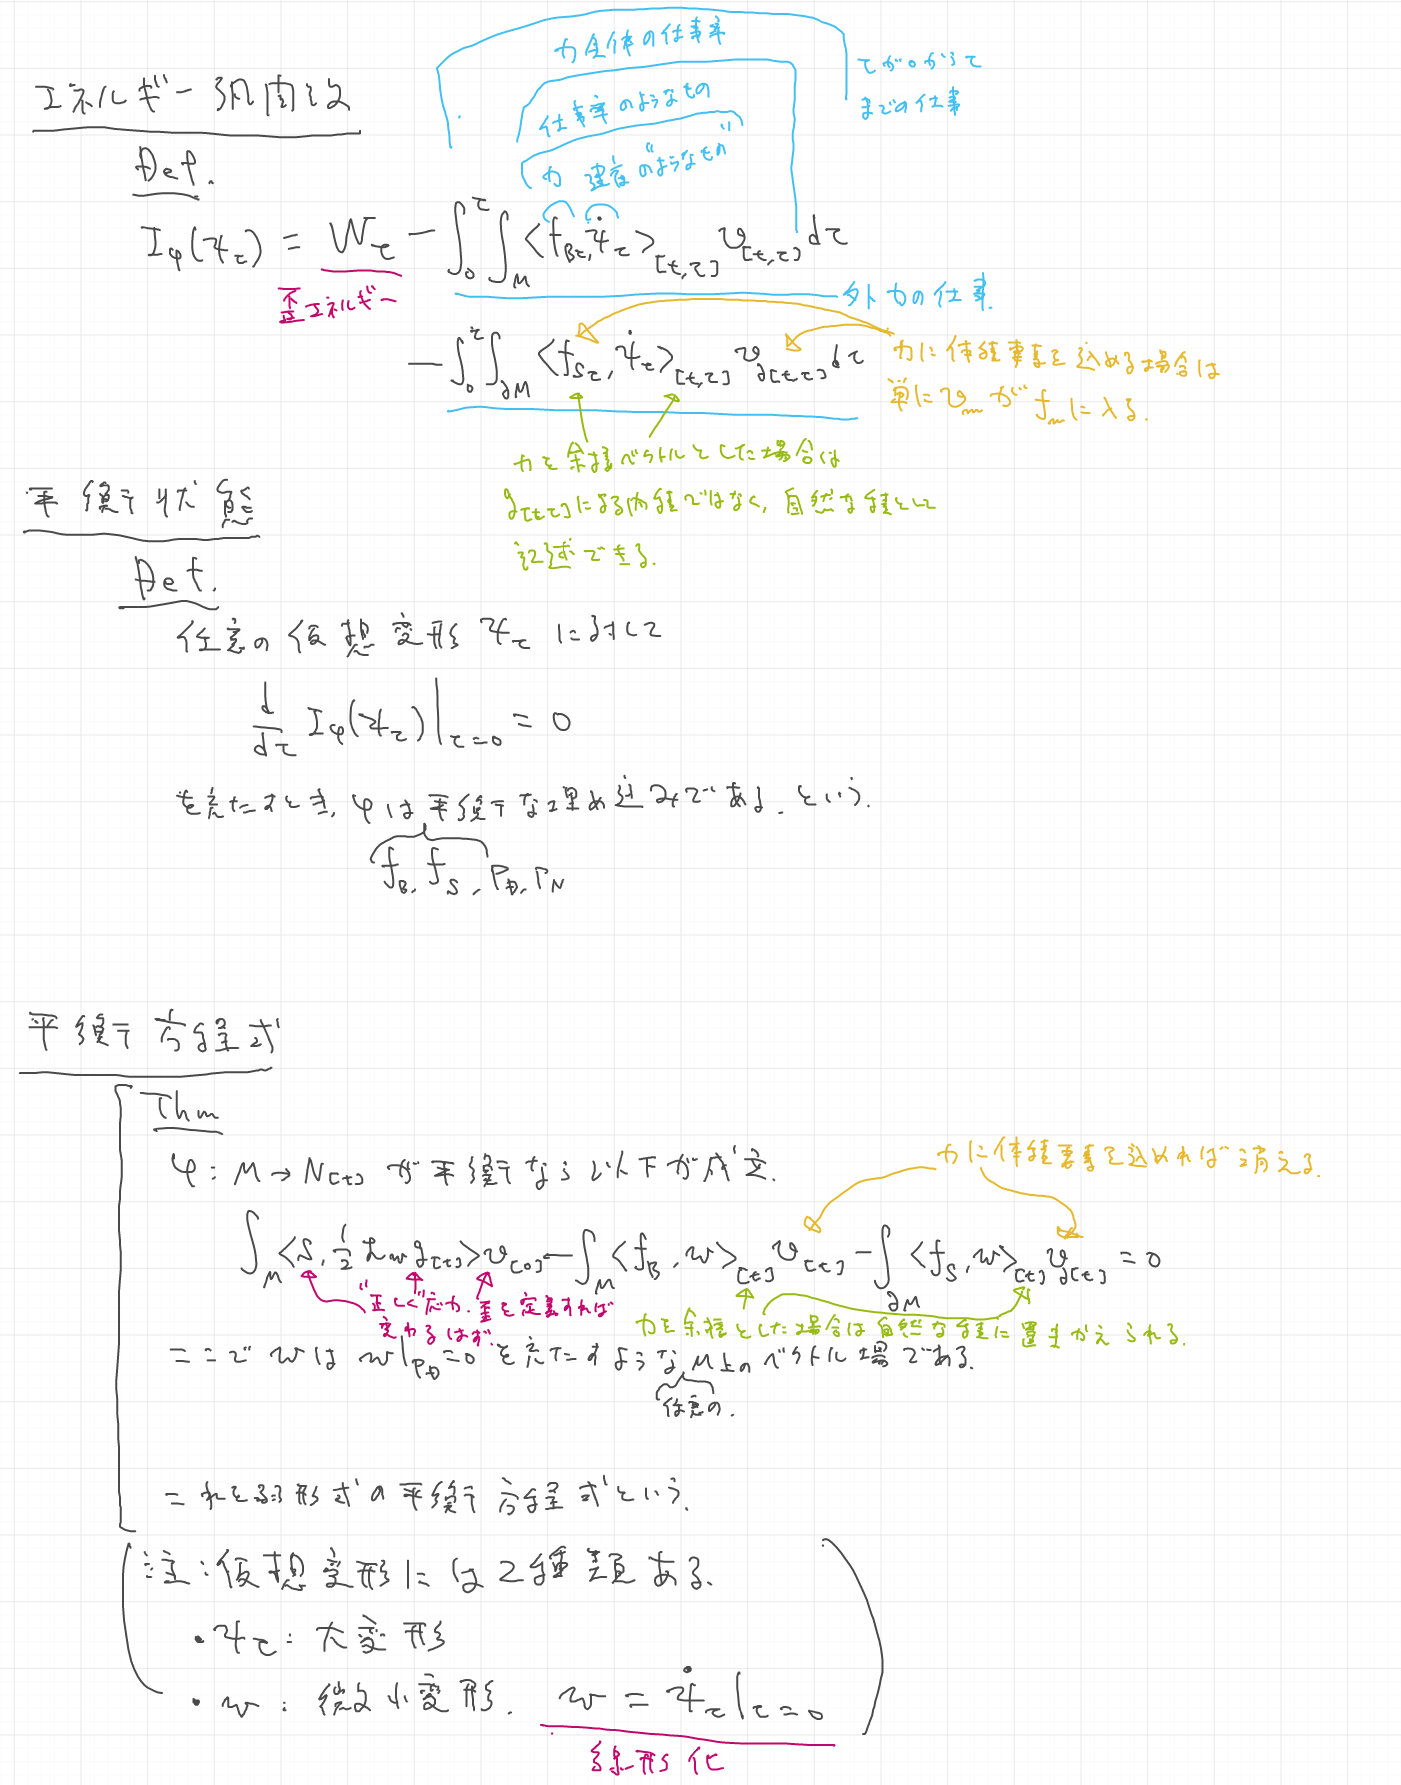 力全体の仕事率
τが0からτ
までの仕事
仕事率のようなもの
力 速度"のようなもの"
エネルギー汎関数
Def.
I_φ(ψ_τ) = W_τ − ∫_0^τ ∫_M <f_{Bτ}, ψ̇_τ>_{[t,τ]} υ_{[t,τ]} dτ
歪エネルギー
外力の仕事
− ∫_0^τ ∫_{∂M} <f_{Sτ}, ψ̇_τ>_{[t,τ]} υ_{∂[t,τ]} dτ
力に体積要素を込める場合は
単に υ_m が f_m に入る.
力を余接ベクトルとした場合は
g_{[t,τ]}による内積ではなく, 自然な積として
記述できる.
平衡状態
Def.
任意の仮想変形 ψ_τ に対して
d/dτ I_φ(ψ_τ)|_{τ=0} = 0
を充たすとき, φは平衡な埋め込みである. という.
f_B, f_S, P_D, P_N
平衡方程式
Thm
φ: M→N_{[t]} が平衡なら以下が成立.
力に体積要素を込めれば消える.
∫_M <S, 1/2 L_w g_{[t]}> υ_{[0]} − ∫_M <f_B, w>_{[t]} υ_{[t]} − ∫_{∂M} <f_S, w>_{[t]} υ_{∂[t]} = 0
"正しく"応力・歪を定義すれば
変わるはず.
力を余接とした場合は自然な積に置きかえられる.
ここで w は w|_{P_D}=0 を充たすような M上のベクトル場である.
任意の.
これを弱形式の平衡方程式という.
注: 仮想変形には2種類ある.
・ψ_τ: 大変形
・w: 微小変形. w = ψ̇_τ|_{τ=0}
線形化